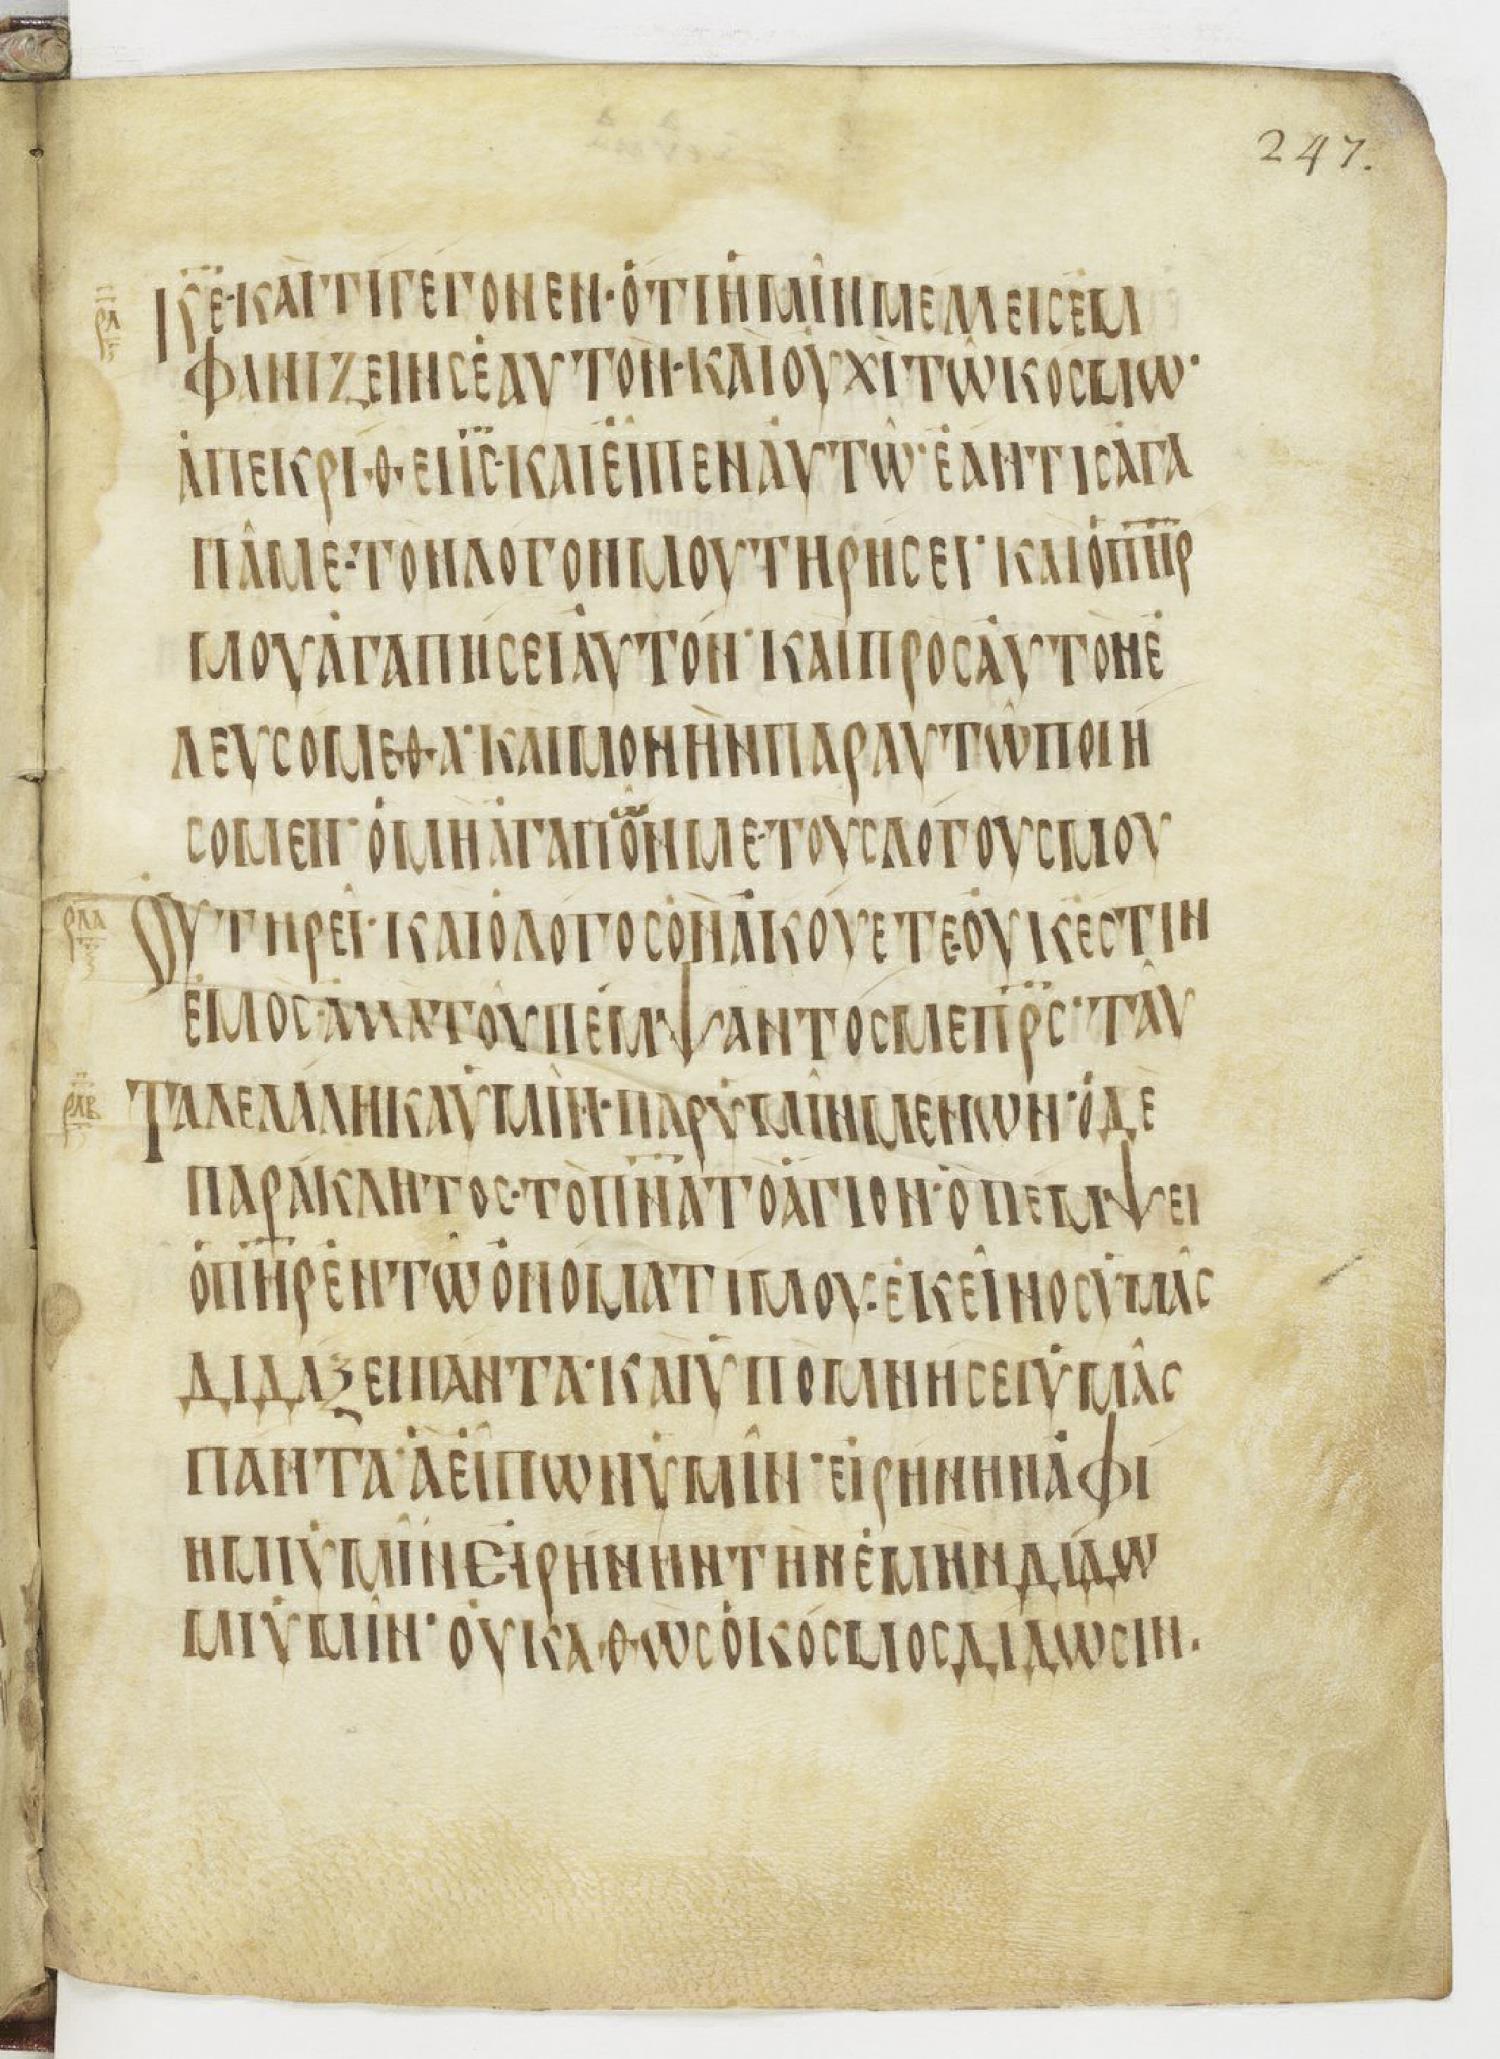 247.
ΚΕ· ΚΑΙ ΤΙ ΓΕΓΟΝΕΝ· ὉΤΙ ἩΜΙΝ ΜΕΛΛΕΙΣ ἘΜ
ΦΑΝΙΖΕΙΝ ΣΕΑΥΤΟΝ· ΚΑΙ ΟΥΧΙ ΤΩ ΚΟΣΜΩ·
ΑΠΕΚΡΙΘΕΙ ΙΣ· ΚΑΙ ΕΙΠΕΝ ΑΥΤΩ· ΕΑΝ ΤΙΣ ΑΓΑ
ΠΑ ΜΕ· ΤΟΝ ΛΟΓΟΝ ΜΟΥ ΤΗΡΗΣΕΙ· ΚΑΙ Ο ΠΗΡ
ΜΟΥ ΑΓΑΠΗΣΕΙ ΑΥΤΟΝ· ΚΑΙ ΠΡΟΣ ΑΥΤΟΝ Ε
ΛΕΥΣΟΜΕΘΑ· ΚΑΙ ΜΟΝΗΝ ΠΑΡ ΑΥΤΩ ΠΟΙΗ
ΣΟΜΕΝ· Ο ΜΗ ΑΓΑΠΟΝ ΜΕ· ΤΟΥΣ ΛΟΓΟΥΣ ΜΟΥ
ΡΛΑ ΟΥ ΤΗΡΕΙ· ΚΑΙ Ο ΛΟΓΟΣ ΟΝ ΑΚΟΥΕΤΕ· ΟΥΚ ΕΣΤΙΝ
ΕΜΟΣ· ΑΛΛΑ ΤΟΥ ΠΕΜΨΑΝΤΟΣ ΜΕ ΠΡΣ· ΤΑΥ
ΡΛΒ ΤΑ ΛΕΛΑΛΗΚΑ ΥΜΙΝ· ΠΑΡ ΥΜΙΝ ΜΕΝΩΝ· Ο ΔΕ
ΠΑΡΑΚΛΗΤΟΣ· ΤΟ ΠΝΑ ΤΟ ΑΓΙΟΝ· Ο ΠΕΜΨΕΙ
Ο ΠΗΡ ΕΝ ΤΩ ΟΝΟΜΑΤΙ ΜΟΥ· ΕΚΕΙΝΟΣ ΥΜΑΣ
ΔΙΔΑΞΕΙ ΠΑΝΤΑ· ΚΑΙ ΥΠΟΜΝΗΣΕΙ ΥΜΑΣ
ΠΑΝΤΑ· Α ΕΙΠΩΝ ΥΜΙΝ· ΕΙΡΗΝΗΝ ΑΦΙ
ΗΜΙ ΥΜΙΝ ΕΙΡΗΝΗΝ ΤΗΝ ΕΜΗΝ ΔΙΔΩ
ΜΙ ΥΜΙΝ· ΟΥ ΚΑΘΩΣ Ο ΚΟΣΜΟΣ ΔΙΔΩΣΙΝ·